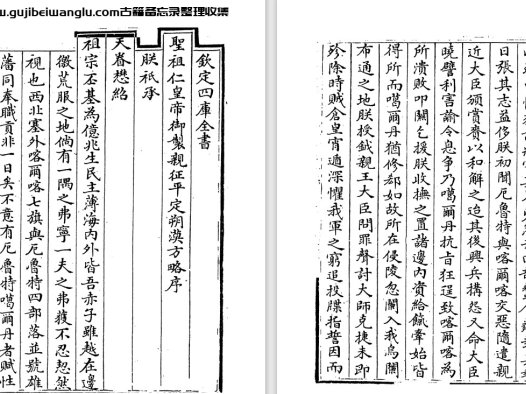 www.gujibeiwanglu.com古籍备忘录整理收集
欽定四庫全書
聖祖仁皇帝御製親征平定朔漠方略序
朕祗承
天眷懋紹
祖宗丕基為億兆生民主薄海內外皆吾赤子雖越在邊
徼荒服之地倘有一隅之弗寧一夫之弗獲不忍恝然
視也西北塞外喀爾喀七旗與厄魯特四部落並號雄
藩同奉職貢非一日矣不意有厄魯特噶爾丹者賦性
日張其志益侈朕初聞厄魯特與喀爾喀交惡隨遣親
近大臣頒賞齎以和解之迨其後興兵搆怨又命大臣
曉譬利害諭令息爭乃噶爾丹抗旨狂逞致喀爾喀為
所潰敗叩關乞援朕收撫之置諸邊內資給餼羣始皆
得所而噶爾丹猶修郄如故所在侵陵忽闌入我烏闌
布通之地朕授鉞親王大臣問罪聲討大師克捷未即
殄除時賊倉皇宵遁深懼我軍之窮追投牒指誓因而